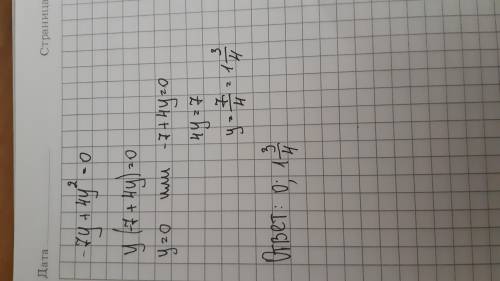 Дата Страница
-7y + 4y² = 0
y (7 + 4y) = 0
y = 0 или -7 + 4y = 0
4y = 7
y = 7/4 = 1 3/4
Ответ: 0; 1 3/4